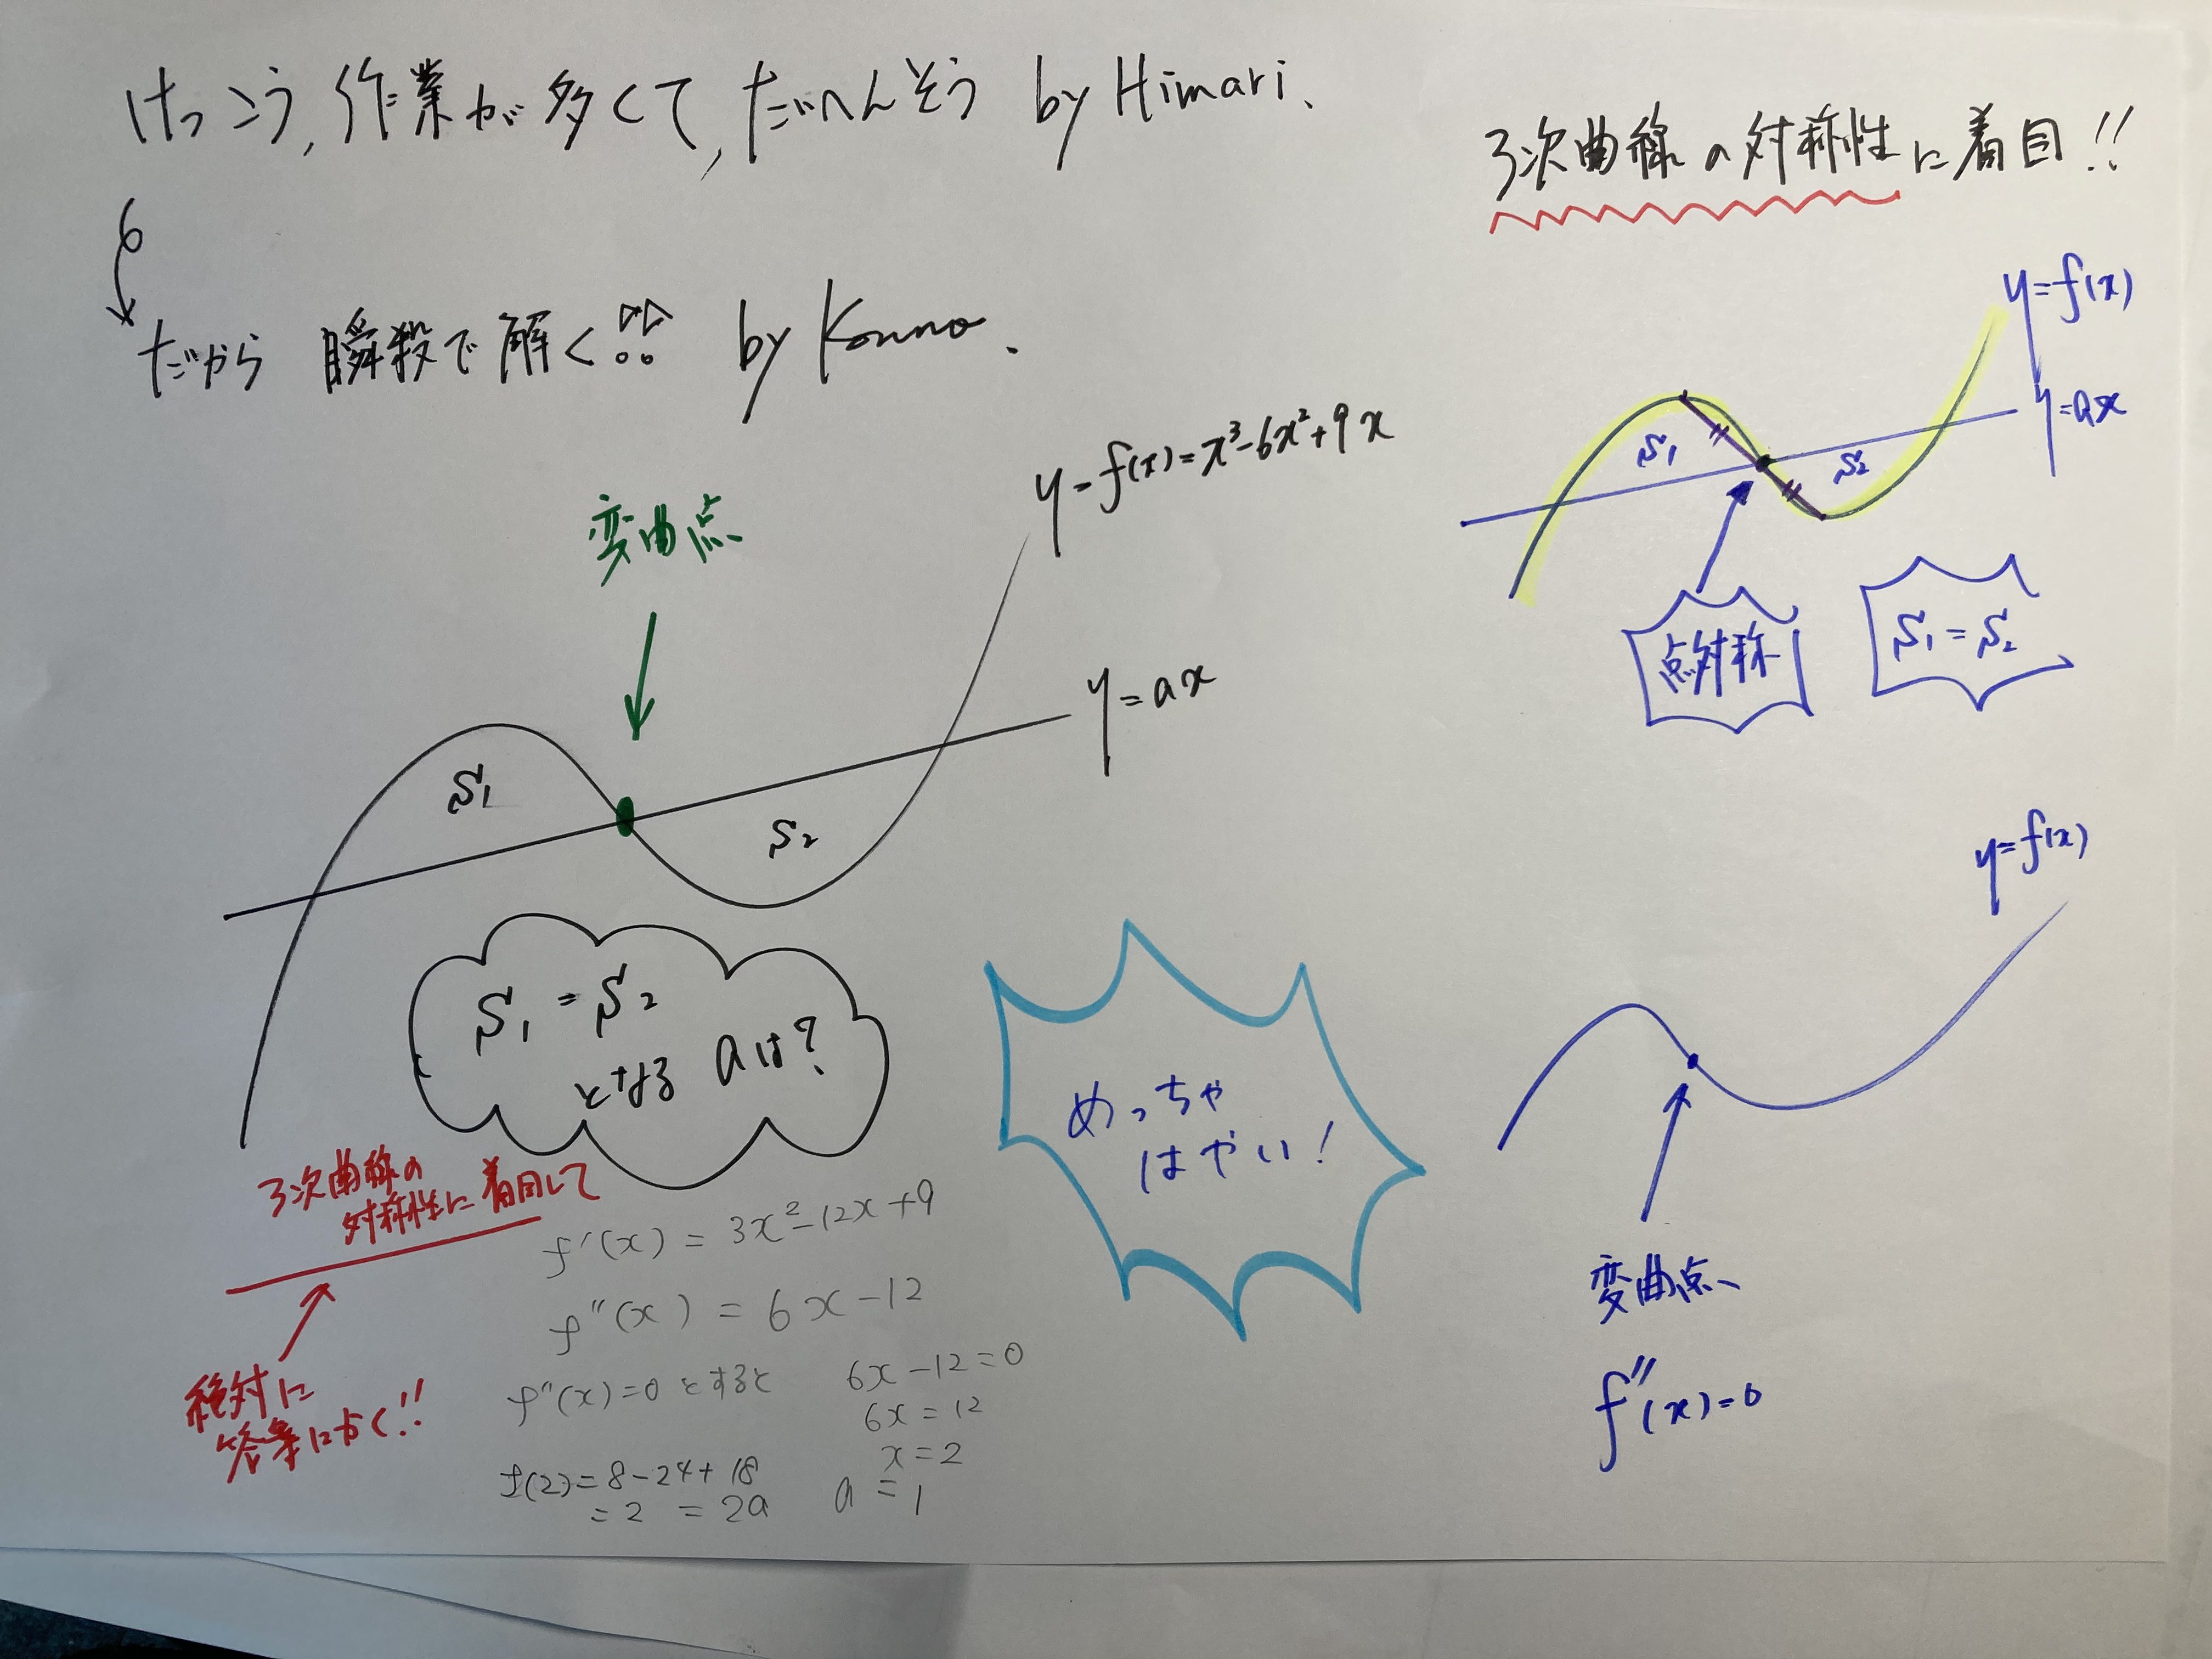 けっこう,作業が多くて,たいへんそう by Himari.
だから 瞬殺で解く!! by Konno.
変曲点
y=f(x)=x³-6x²+9x
y=ax
S₁
S₂
S₁=S₂
となる aは?
3次曲線の
対称性に着目して
絶対に
答案にかく!!
f'(x)=3x²-12x+9
f''(x)=6x-12
f''(x)=0とすると 6x-12=0
6x=12
x=2
f(2)=8-24+18
=2 =2a a=1
めっちゃ
はやい!
3次曲線の対称性に着目!!
y=f(x)
y=ax
S₁
S₂
点対称
S₁=S₂
y=f(x)
変曲点
f''(x)=0